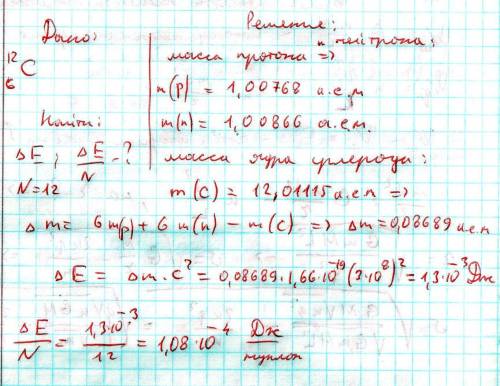 Дано:
Решение:
¹²₆C
масса протона и нейтрона: =>
m(p) = 1,00768 а.е.м
m(n) = 1,00866 а.е.м.
Найти:
масса ядра углерода:
ΔE; ΔE/N - ?
N=12
m(C) = 12,01115 а.е.м =>
Δm = 6m(p) + 6m(n) - m(C) => Δm = 0,08689 а.е.м
ΔE = Δm·c² = 0,08689·1,66·10⁻¹⁹(3·10⁸)² = 1,3·10⁻³ Дж
ΔE/N = 1,3·10⁻³/12 = 1,08·10⁻⁴ Дж/нуклон